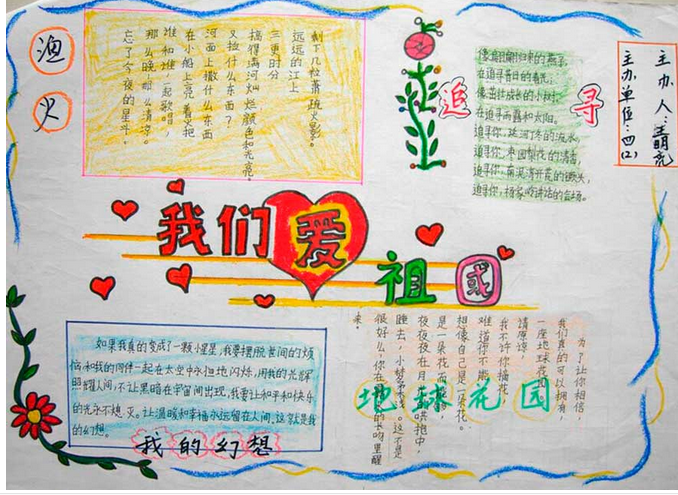 渔火
忘了今夜的星斗。
那么晚,那么清凉。
谁和谁一起歌唱,
在小船上亮着火把
河面上撒什么东西
又捡什么东西?
搞得满河灿烂颜色和光亮。
三更时分
远远的江上
剩下几粒萧疏火影。
追寻
像南归的燕子,
在追寻昔日的春光;
像茁壮成长的小树,
在追寻雨露和太阳。
追寻你,延河流水,
追寻你,枣园梨花的清香,
追寻你,南泥湾开荒的镢头,
追寻你,杨家岭讲话的会场。
主办人:王明亮
主办单位:四(2)
我们爱祖国
如果我真的变成了一颗小星星,我要摆脱世间的烦
恼,和我的同伴一起在太空中永恒地闪烁,用我的光辉
照耀人间,不让黑暗在宇宙间出现,我要让和平和快乐
的光永不熄灭。让温暖和幸福永远留在人间,这就是我
的幻想。
我的幻想
地球花园
为了让你相信,
我们真的可以拥有,
一座地球花园
请原谅,
我不许你摘花,
难道你不能
想像自己是一朵花。
是一朵花
夜夜夜在月 抱中
睡去,小 这不是
很好么,你在 吻里醒
来。